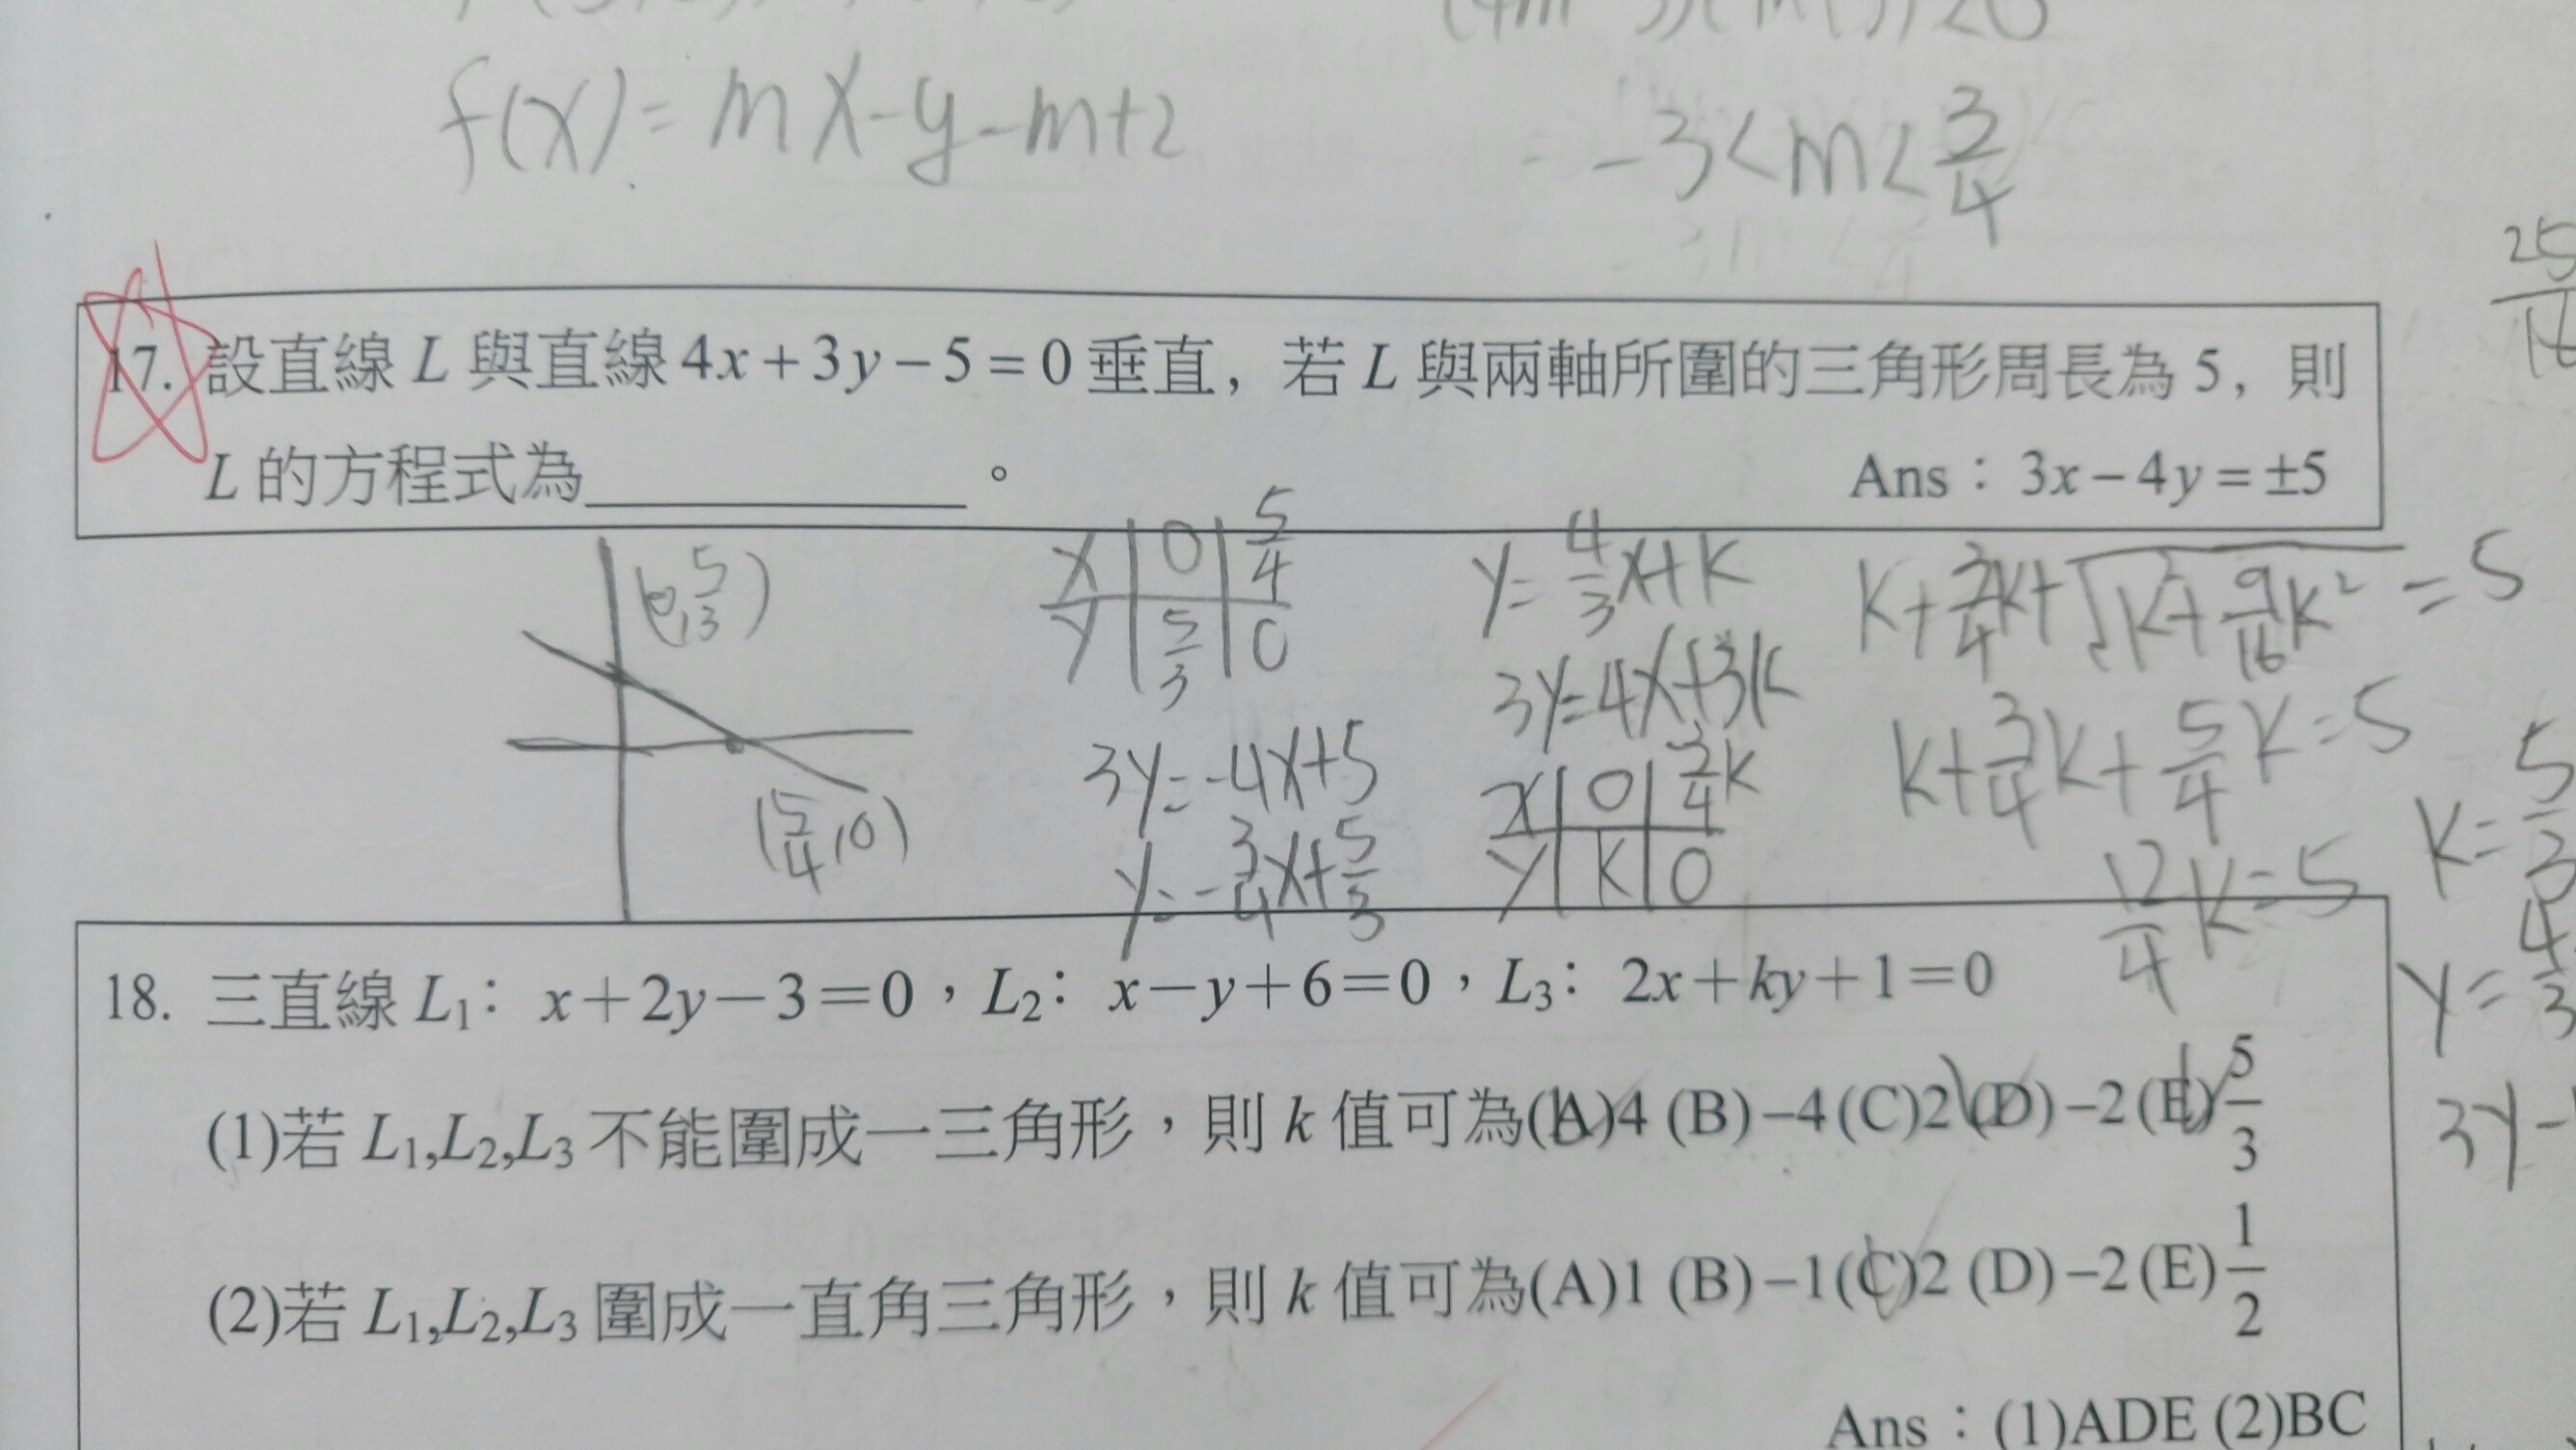 f(x)=mx-y-m+2
-3<m<3/4
17. 設直線 L 與直線 4x+3y−5=0 垂直，若 L 與兩軸所圍的三角形周長為 5，則
L 的方程式為__________。 Ans：3x−4y=±5
(0,5/3)
(5/4,0)
x|0|5/4
y|5/3|0
3y=-4x+5
y=-3/4x+5/3
y=4/3x+k
3y=4x+3k
x|0|3/4k
y|k|0
k+3/4k+√(k²+9/16k²)=5
k+3/4k+5/4k=5
12/4k=5
k=5/3
18. 三直線 L₁：x+2y−3=0，L₂：x−y+6=0，L₃：2x+ky+1=0
(1)若 L₁,L₂,L₃ 不能圍成一三角形，則 k 值可為(A)4 (B)−4 (C)2 (D)−2 (E)5/3
(2)若 L₁,L₂,L₃ 圍成一直角三角形，則 k 值可為(A)1 (B)−1 (C)2 (D)−2 (E)1/2
Ans：(1)ADE (2)BC